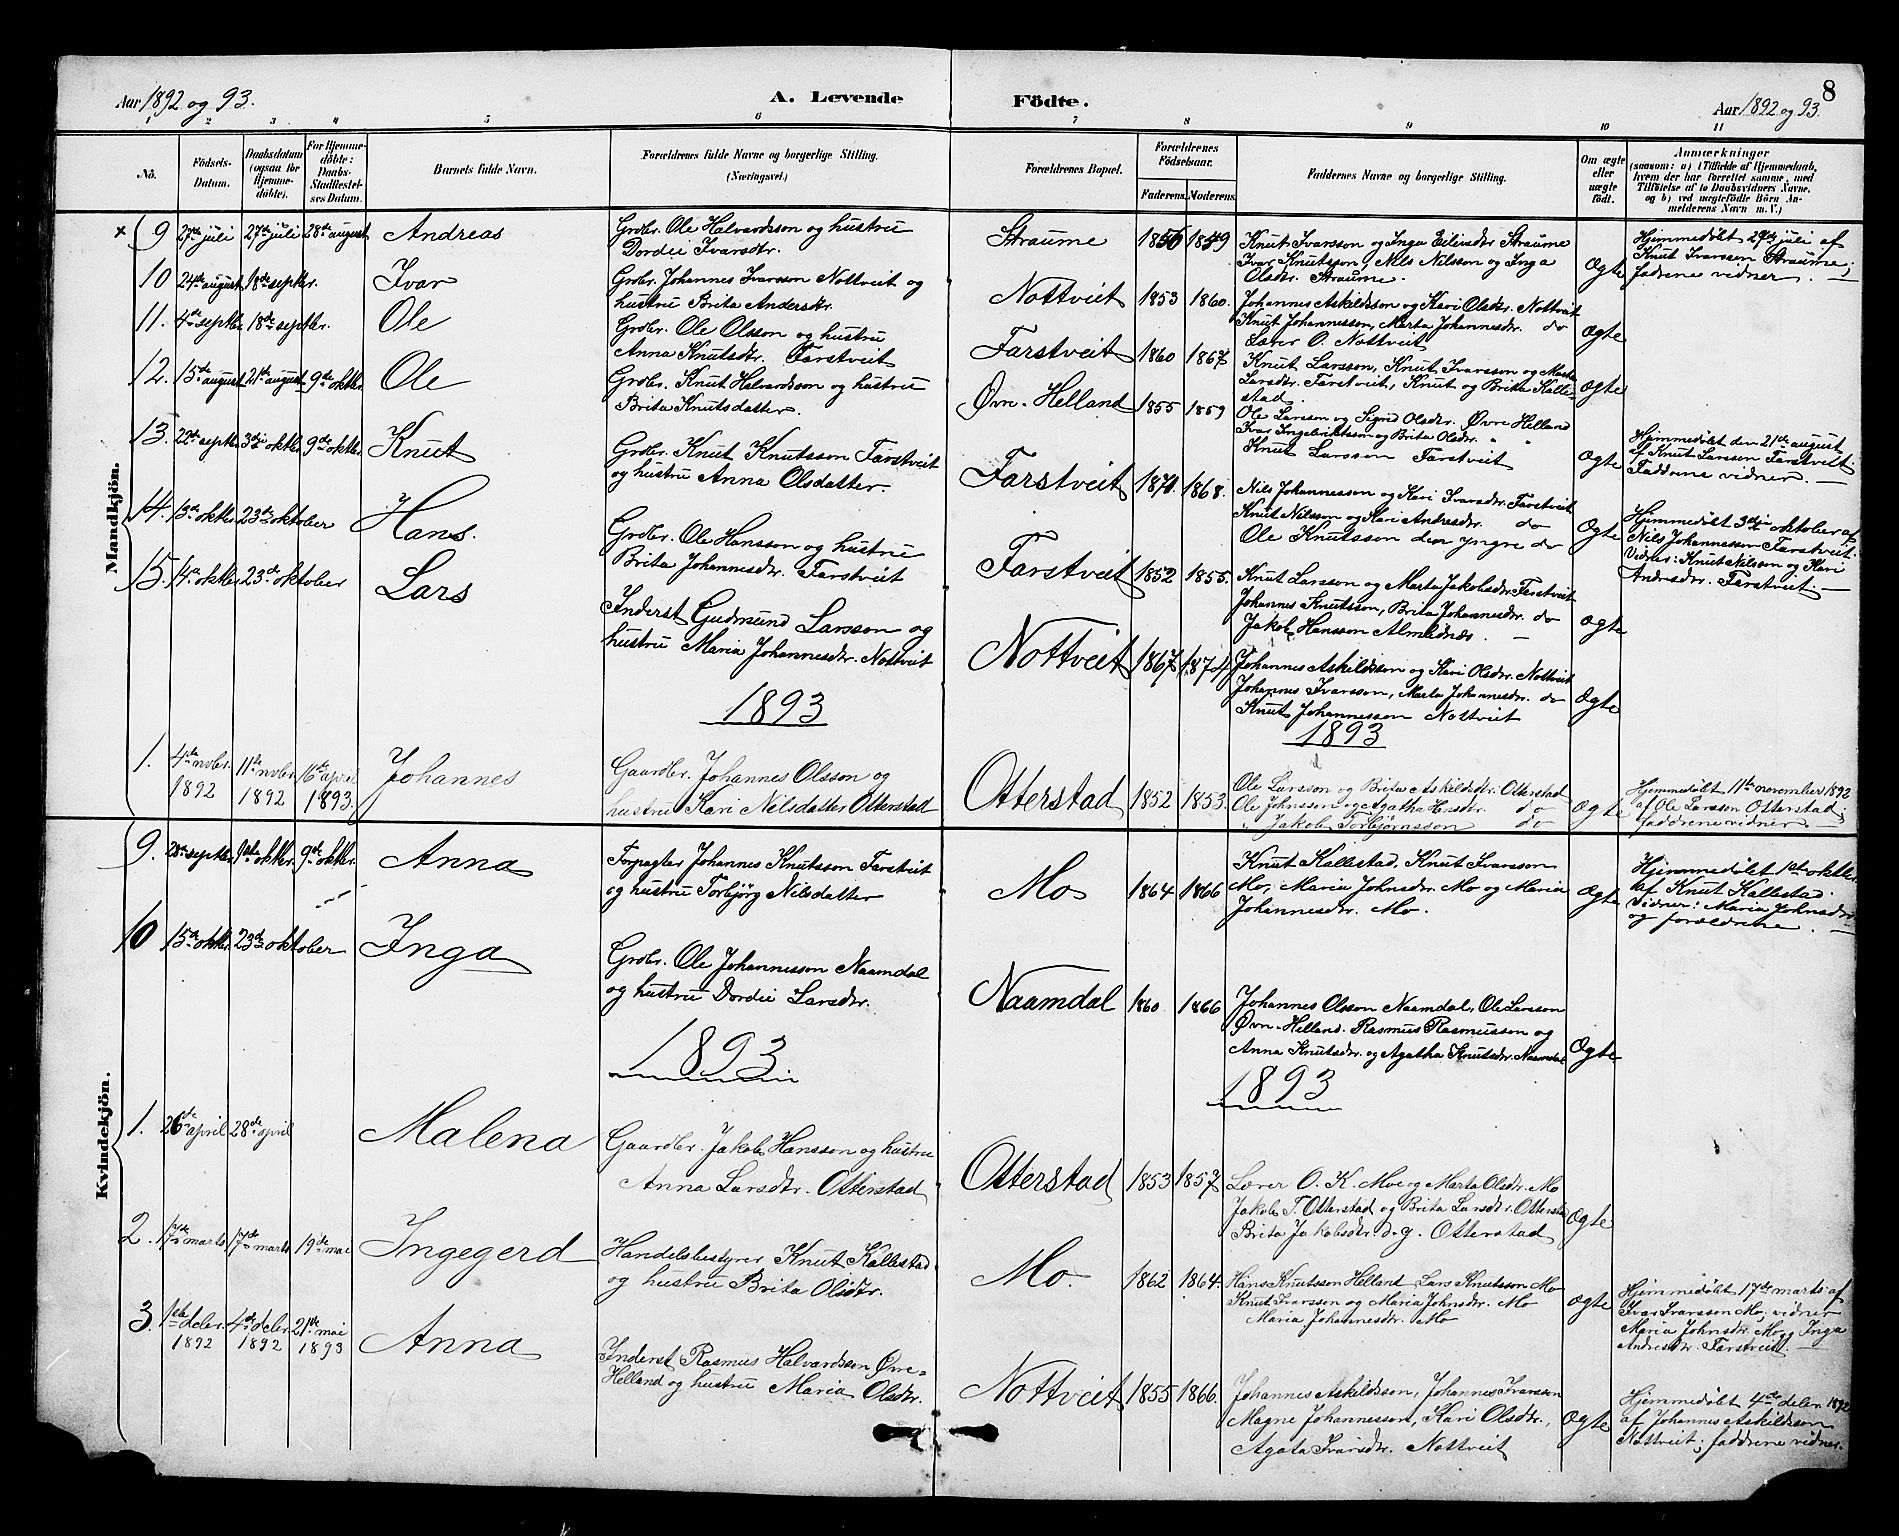 8
Aar 1892 og 93.
A. Levende
Födte.
Aar 1892 og 93.
1 2 3 4 5 6 7 8 9 10 11
No.
Födsels-
Datum.
Daabsdatum
(ogsaa for
Hjemme-
döbte).
For Hjemme-
döbte:
Daabs-
Stadfæstel-
ses Datum.
Barnets fulde Navn.
Forældrenes fulde Navne og borgerlige Stilling.
(Næringsvei.)
Forældrenes Bopæl.
Forældrenes
Födselsaar.
Faderens. Moderens.
Faddernes Navne og borgerlige Stilling.
Om ægte
eller
uægte
födt.
Anmærkninger
(saasom: a) i Tilfælde af Hjemmedaab,
hvem der har forrettet samme, med
Tilföielse af to Daabsvidners Navne,
og b) ved uægtefödte Börn An-
melderens Navn m. V.)
Mandkjön.
× 9 27de juli 27de juli 28de august Andreas
Grdbr. Ole Halvardsson og hustru
Dordei Ivarsdtr.
Straume 1856 1859
Knut Ivarsson og Inga Eilivsdtr Straume
Ivar Knutsson, Nils Nilsson og Inga
Olsdtr. Straume.
Ægte
Hjemmedøbt 27de juli af
Knut Ivarsson Straume;
fadrene vidner. —
10 24de august 18de septbr. Ivar
Grdbr. Johannes Ivarsson Nottveit og
hustru Brita Andersdr.
Nottveit 1853 1860.
Johannes Askildsson og Kari Olsdr. Nottveit
Knut Johannessen, Marta Johannesdr. do
Lærer O. Nottveit
Ægte
11. 4de septbr 18de septbr. Ole
Grdbr. Ole Olsson og hustru
Anna Knutsdtr. Farstveit
Farstveit 1860 1867
Knut Larsson, Knut Ivarsson og Marta
Larsdtr. Farstveit, Knut og Brita Kalle-
stad.
Ægte
12. 15de august 21de august 9de oktbr. Ole
Grdbr. Knut Halvardsson og hustru
Brita Knutsdatter.
Øvre-Helland 1855 1859
Ole Larsson og Signe Olsdtr. Øvre Helland
Ivar Ingebriktsson og Brita Olsdtr. " "
Knut Larsson Farstveit
Ægte
Hjemmedøbt den 21de august
af Knut Larsson Farstveit
Faddrene vidner. —
13. 22de septbr. 3die oktbr. 9de oktbr. Knut
Grdbr. Knut Knutsson Farstveit
og hustru Anna Olsdatter.
Farstveit 1871. 1868.
Nils Johannesson og Kari Ivarsdtr. Farstveit
Knut Nilsson og Kari Andresdtr. do
Ole Knutsson den yngre do
Ægte
Hjemmedøbt 3die oktober af
Nils Johannessen Farstveit.
Vidner: Knut Nilsson og Kari
Andresdtr. Farstveit. —
14. 13de oktbr 23de oktober Hans.
Grdbr. Ole Hansson og hustru
Brita Johannesdtr. Farstveit
Farstveit 1852 1855.
Knut Larsson og Marta Jakobsdtr. Farstveit
Johannes Knutsson, Brita Johannesdtr. do
Jakob Hansson Almeldnæs. —
Ægte
15. 14de oktbr 23de oktober Lars
Inderst Gudmund Larsson og
hustru Maria Johannesdtr. Nottveit
Nottveit 1867 1874
Johannes Askildsson og Kari Olsdtr. Nottveit
Johannes Ivarsson, Marta Johannesdtr. do
Knut Johannesson Nottveit
Ægte
1893
1893
1. 4de novbr. 1892 11te novbr. 1892 16de april 1893. Johannes
Gaardbr. Johannes Olsson og
hustru Kari Nilsdatter Otterstad
Otterstad 1852 1853.
Ole Larsson og Brita Askildsdtr. Otterstad
Ole Johnsson og Agatha do
Jakob Torbjørnsson do
Ægte
Hjemmedøbt 11te november 1892
af Ole Larsson Otterstad;
faddrene vidner. —
Kvindekjön.
9. 28de septbr. 9nde oktbr. 9de oktbr. Anna
Forpagter Johannes Knutsson Farstveit
og hustru Torbjørg Nilsdatter
Mo 1864 1866
Knut Kallestad. Knut Ivarsson
Mo, Maria Johnsdtr. Mo og Maria
Johannesdtr. Mo.
Ægte
Hjemmedøbt 1ste oktbr.
af Knut Kallestad.
Vidner: Maria Johnsdtr
og forældrene. —
10 15de oktbr. 23de oktober Inga
Grdbr. Ole Johannesson Naamdal
og hustru Dordei Larsdtr.
Naamdal 1860 1866
Johannes Olsson Naamdal, Ole Larsson
Øvre-Helland. Rasmus Rasmusson og
Anna Knutsdtr. og Agatha Knutsdtr. Naamdal
Ægte
1893
1893
1. 26de april 28de april Malena
Gaardbr. Jakob Hansson og hustru
Anna Larsdtr. Otterstad
Otterstad 1853 1857
Lærer O. K. Moe og Marta Olsdtr. Mo
Jakob T. Otterstad og Brita Larsdtr. Otterstad
Brita Jakobsdtr. d.y. Otterstad
Ægte
2. 17de marts 17de marts 19de mai Ingegerd
Handelsbestyrer Knut Kallestad
og hustru Brita Olsdtr.
Mo. 1862 1864
Hans Knutsson Helland Lars Knutsson Mo
Knut Ivarsson og Maria Johnsdtr. Mo
Maria Johannesdtr. Mo
Ægte
Hjemmedøbt 17de marts af
Ivar Ivarsson Mo, vidner
Maria Johnsdtr. Mo og Inga
Andresdtr. Farstveit. —
3. 1ste decbr. 1892 4de decbr. 1892 21de mai 1893 Anna
Inderst Rasmus Halvardsson Øvre-
Helland og hustru Maria Olsdtr.
Nottveit 1855 1866.
Johannes Askildsson, Johannes Ivarsson
Magne Johannesson, Kari Olsdtr.,
Agata Ivarsdtr. Nottveit
Ægte
Hjemmedøbt 4de decbr 1892
af Johannes Askildsson
Nottveit; faddrene vidner.